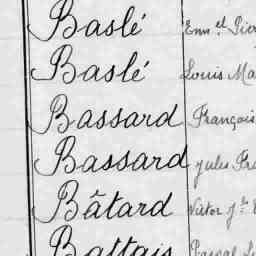 Baslé Emn.el
Baslé Louis
Bassard François
Bassard Jules
Bâtard Victor
Battais Pascal